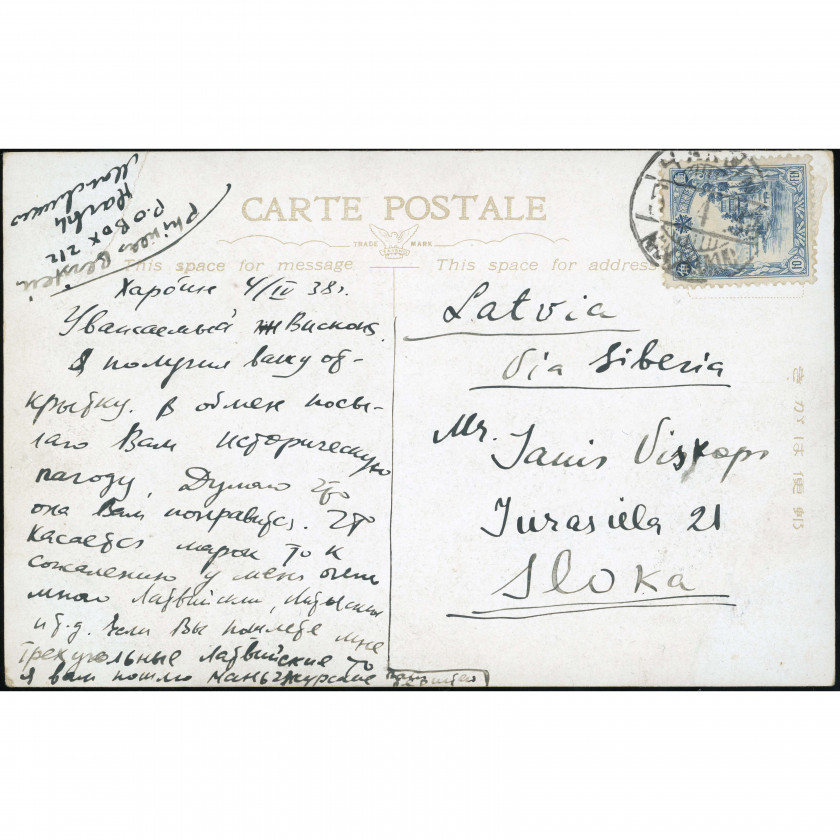 Phineas Bernstein
P.O Box 212
Harbin
CARTE POSTALE
TRADE MARK
This space for message
This space for address
Харбин 4/IV 38 г.
Уважаемый Вископ.
Я получил вашу от-
крытку. В обмен посы-
лаю Вам историческую
пагоду. Думаю что
она Вам понравится. Что
касается марок то к
сожалению у меня очень
много Латвийских, Литовских
и т.д. Если Вы пошлете мне
трехугольные Латвийские то
я вам пошлю Маньчжурские
Latvia
Via Siberia
Mr. Janis Viskops
Jurasiela 21
Sloka
きがは便郵
10